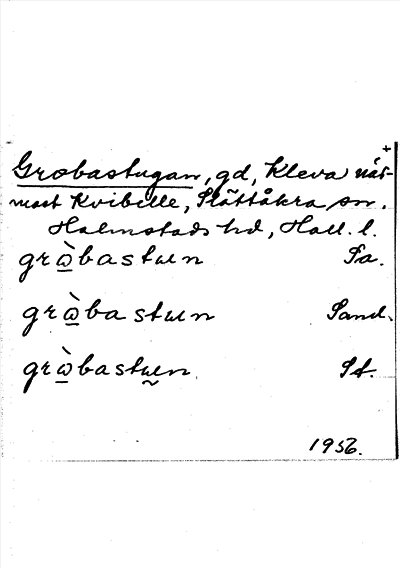 +
Grobastugan, gd, Kleva när-
mast Kvibille, Slättåkra sn.
Halmstads hd, Hall. l.
grɷ̀bastɯn Sa.
grɷ̀bastɯn Sand.
grɷ̀bastɯn St.
1956.